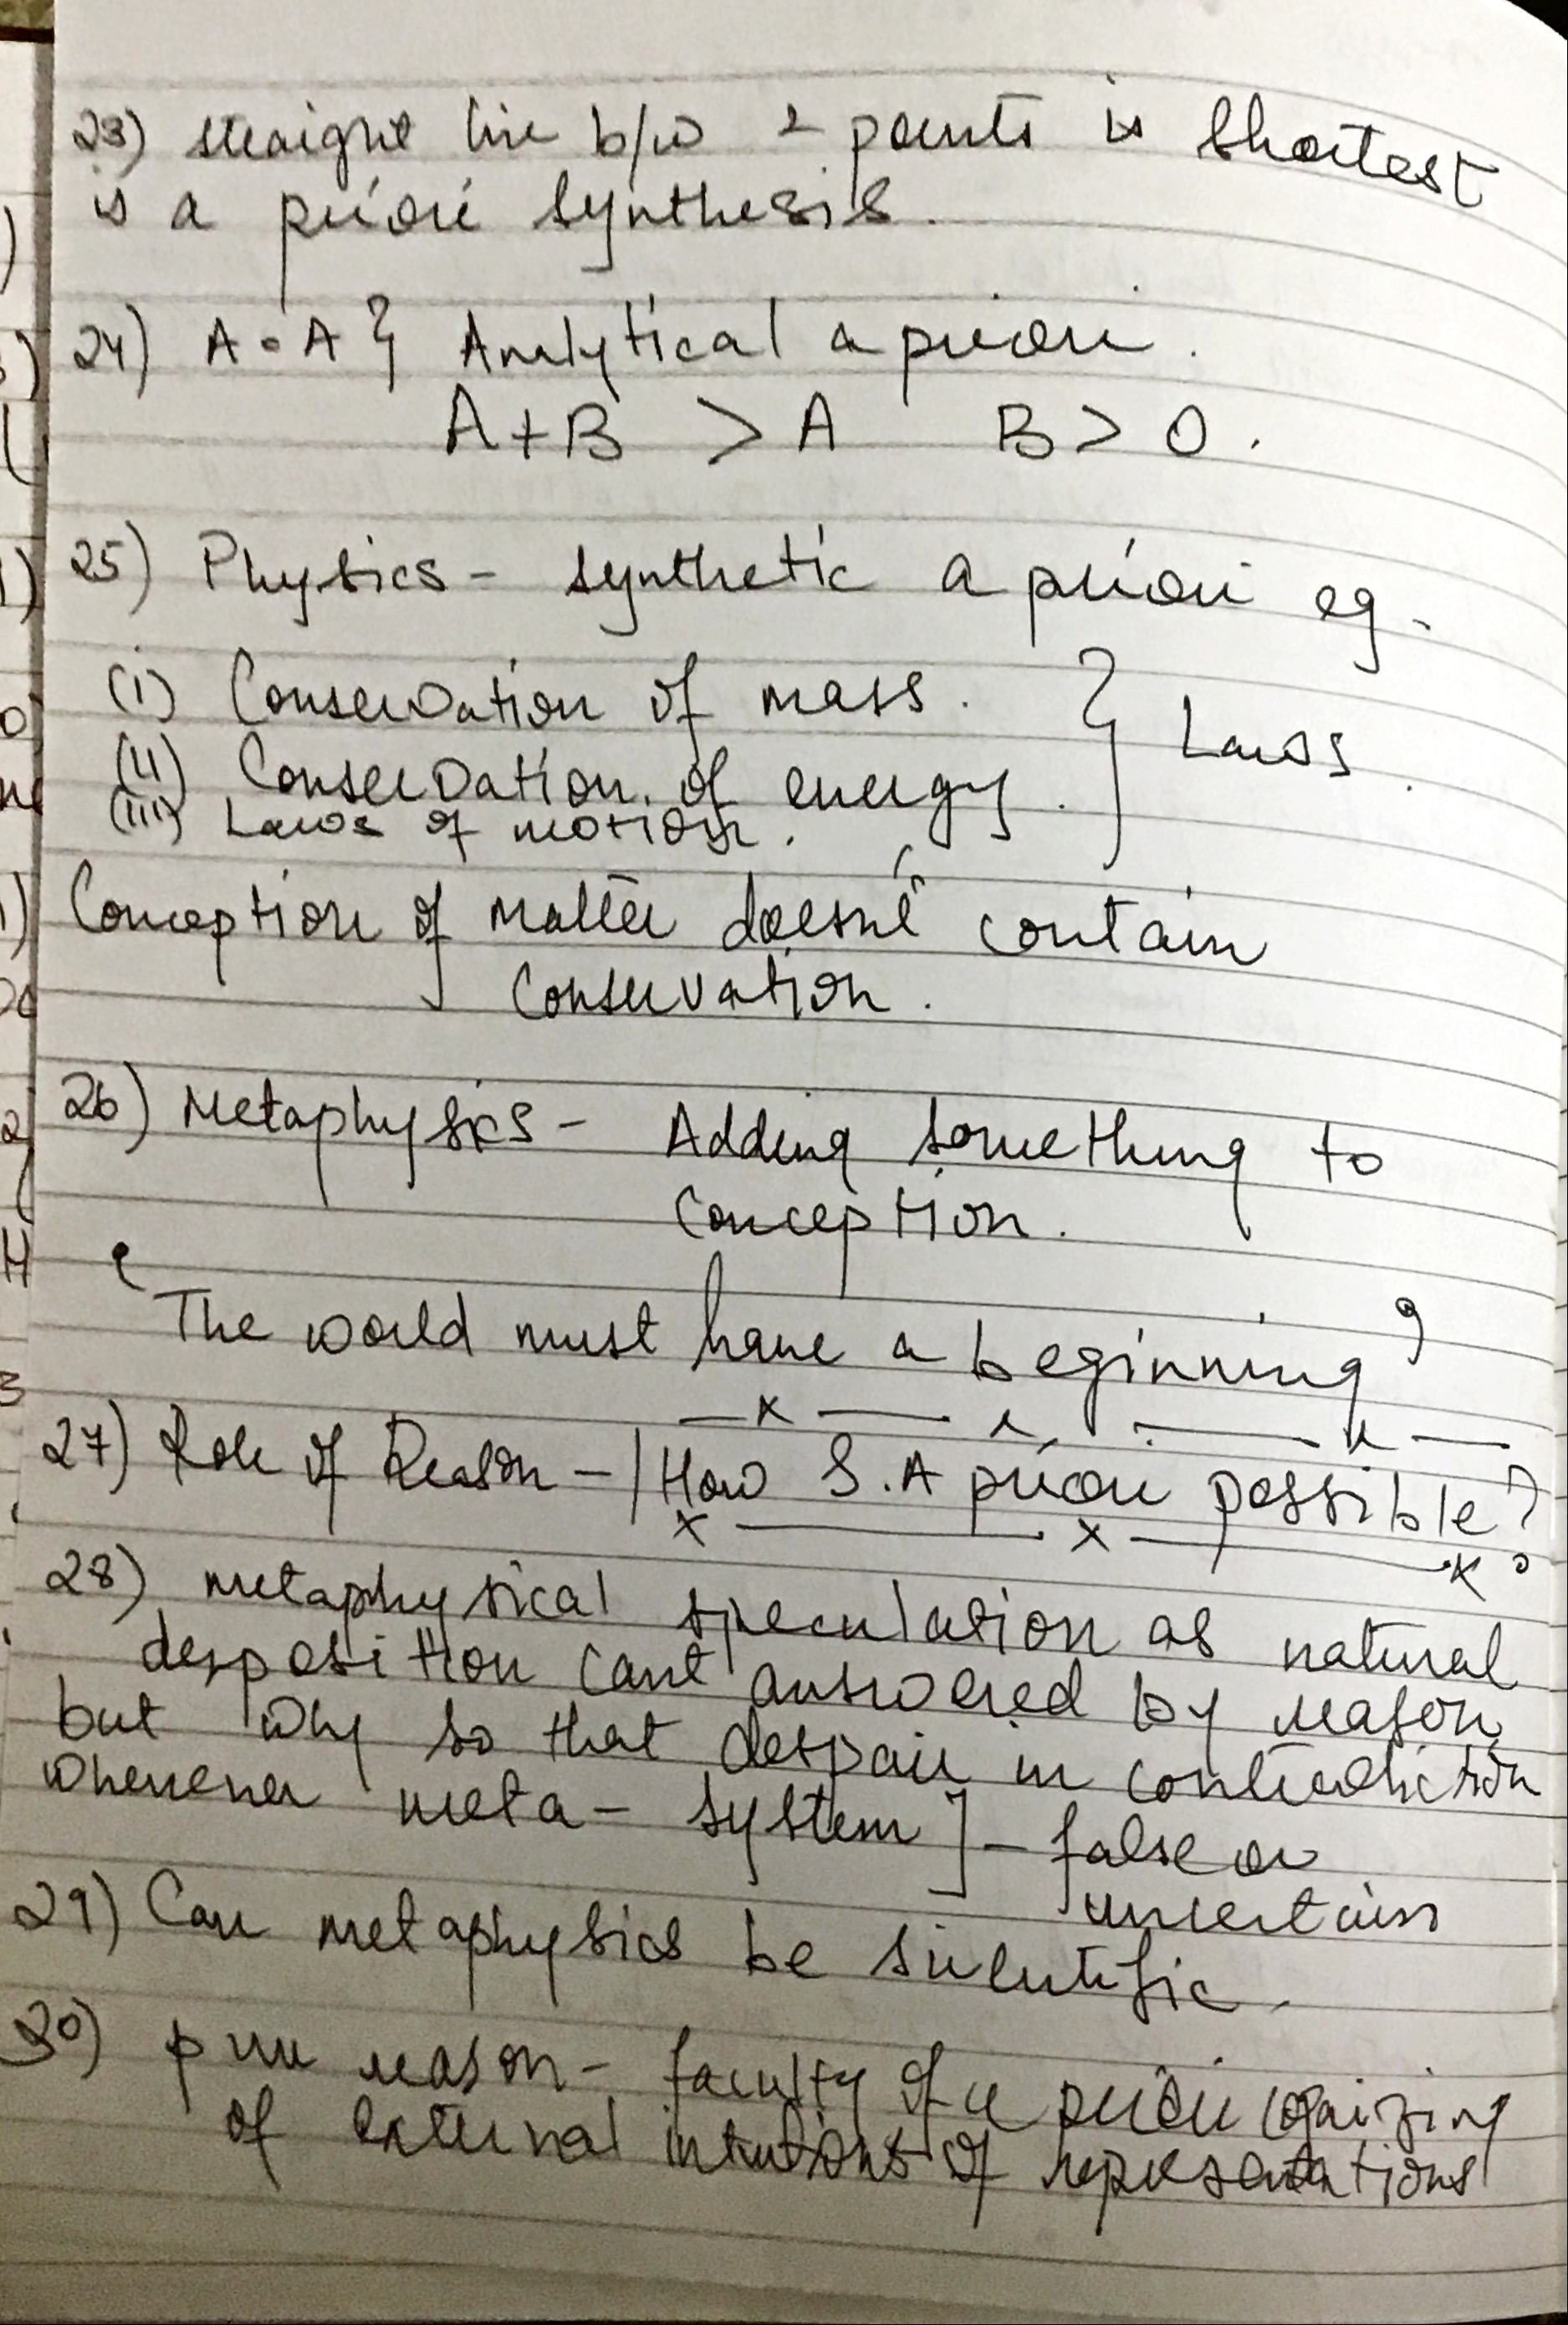 23) straight line b/w 2 points is shortest
is a priori synthesis.
24) A = A } Analytical a priori.
A + B > A B > 0.
25) Physics - synthetic a priori eg.
(i) Conservation of mass.
(ii) Conservation of energy. } Laws.
(iii) Laws of motion.
Conception of matter doesn't contain
conservation.
26) Metaphysics - Adding something to
conception.
'The world must have a beginning'
27) Role of Reason - | How S.A priori possible?
28) metaphysical speculation as natural
desposition cant answered by reason,
but why so that despair in contradiction
whenever meta - system ] - false or
uncertain
29) Can metaphysics be scientific.
30) pure reason - faculty of a priori cognizing
of external intutions of representations